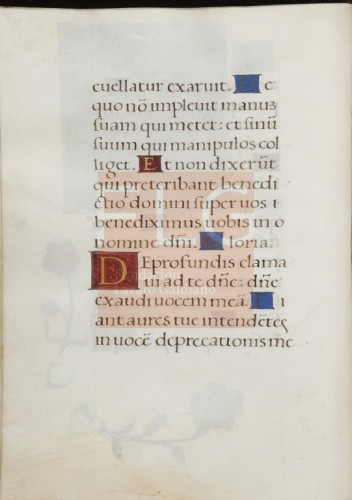 euellatur exaruit. De
quo nõ impleuit manus
suam qui metet: et sinũ
suum qui manipulos col
liget. Et non dixerũt
qui preteribant benedi
ctio domini super uos:
benediximus uobis in o
nomine dñi. Gloria.
De profundis clama
ui ad te dñe: dñe
exaudi uocem meã. Fi
ant aures tue intendẽtes
in uocẽ deprecationis me